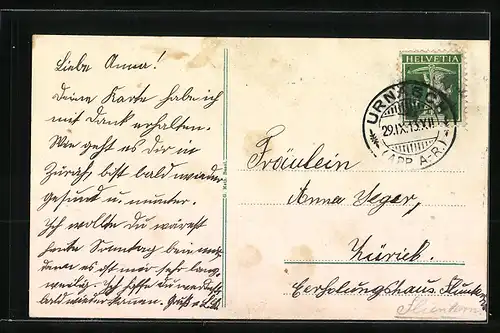 Liebe Anna!
Deine Karte habe ich
mit Dank erhalten.
Wie geht es Dir in
Zürich, bist bald wieder
gesund u. munter.
Ich wollte Du wärest
heute Sonntag bei mir,
denn es ist mir sehr lang-
weilig. Ich hoffe Du werdest
bald wieder kommen. Gruß
HELVETIA
URNÄSCH
29.IX.13.XII
(APP. A-R.)
Fräulein
Anna Jeger,
Zürich.
Erholungshaus Fluntern
Fluntern